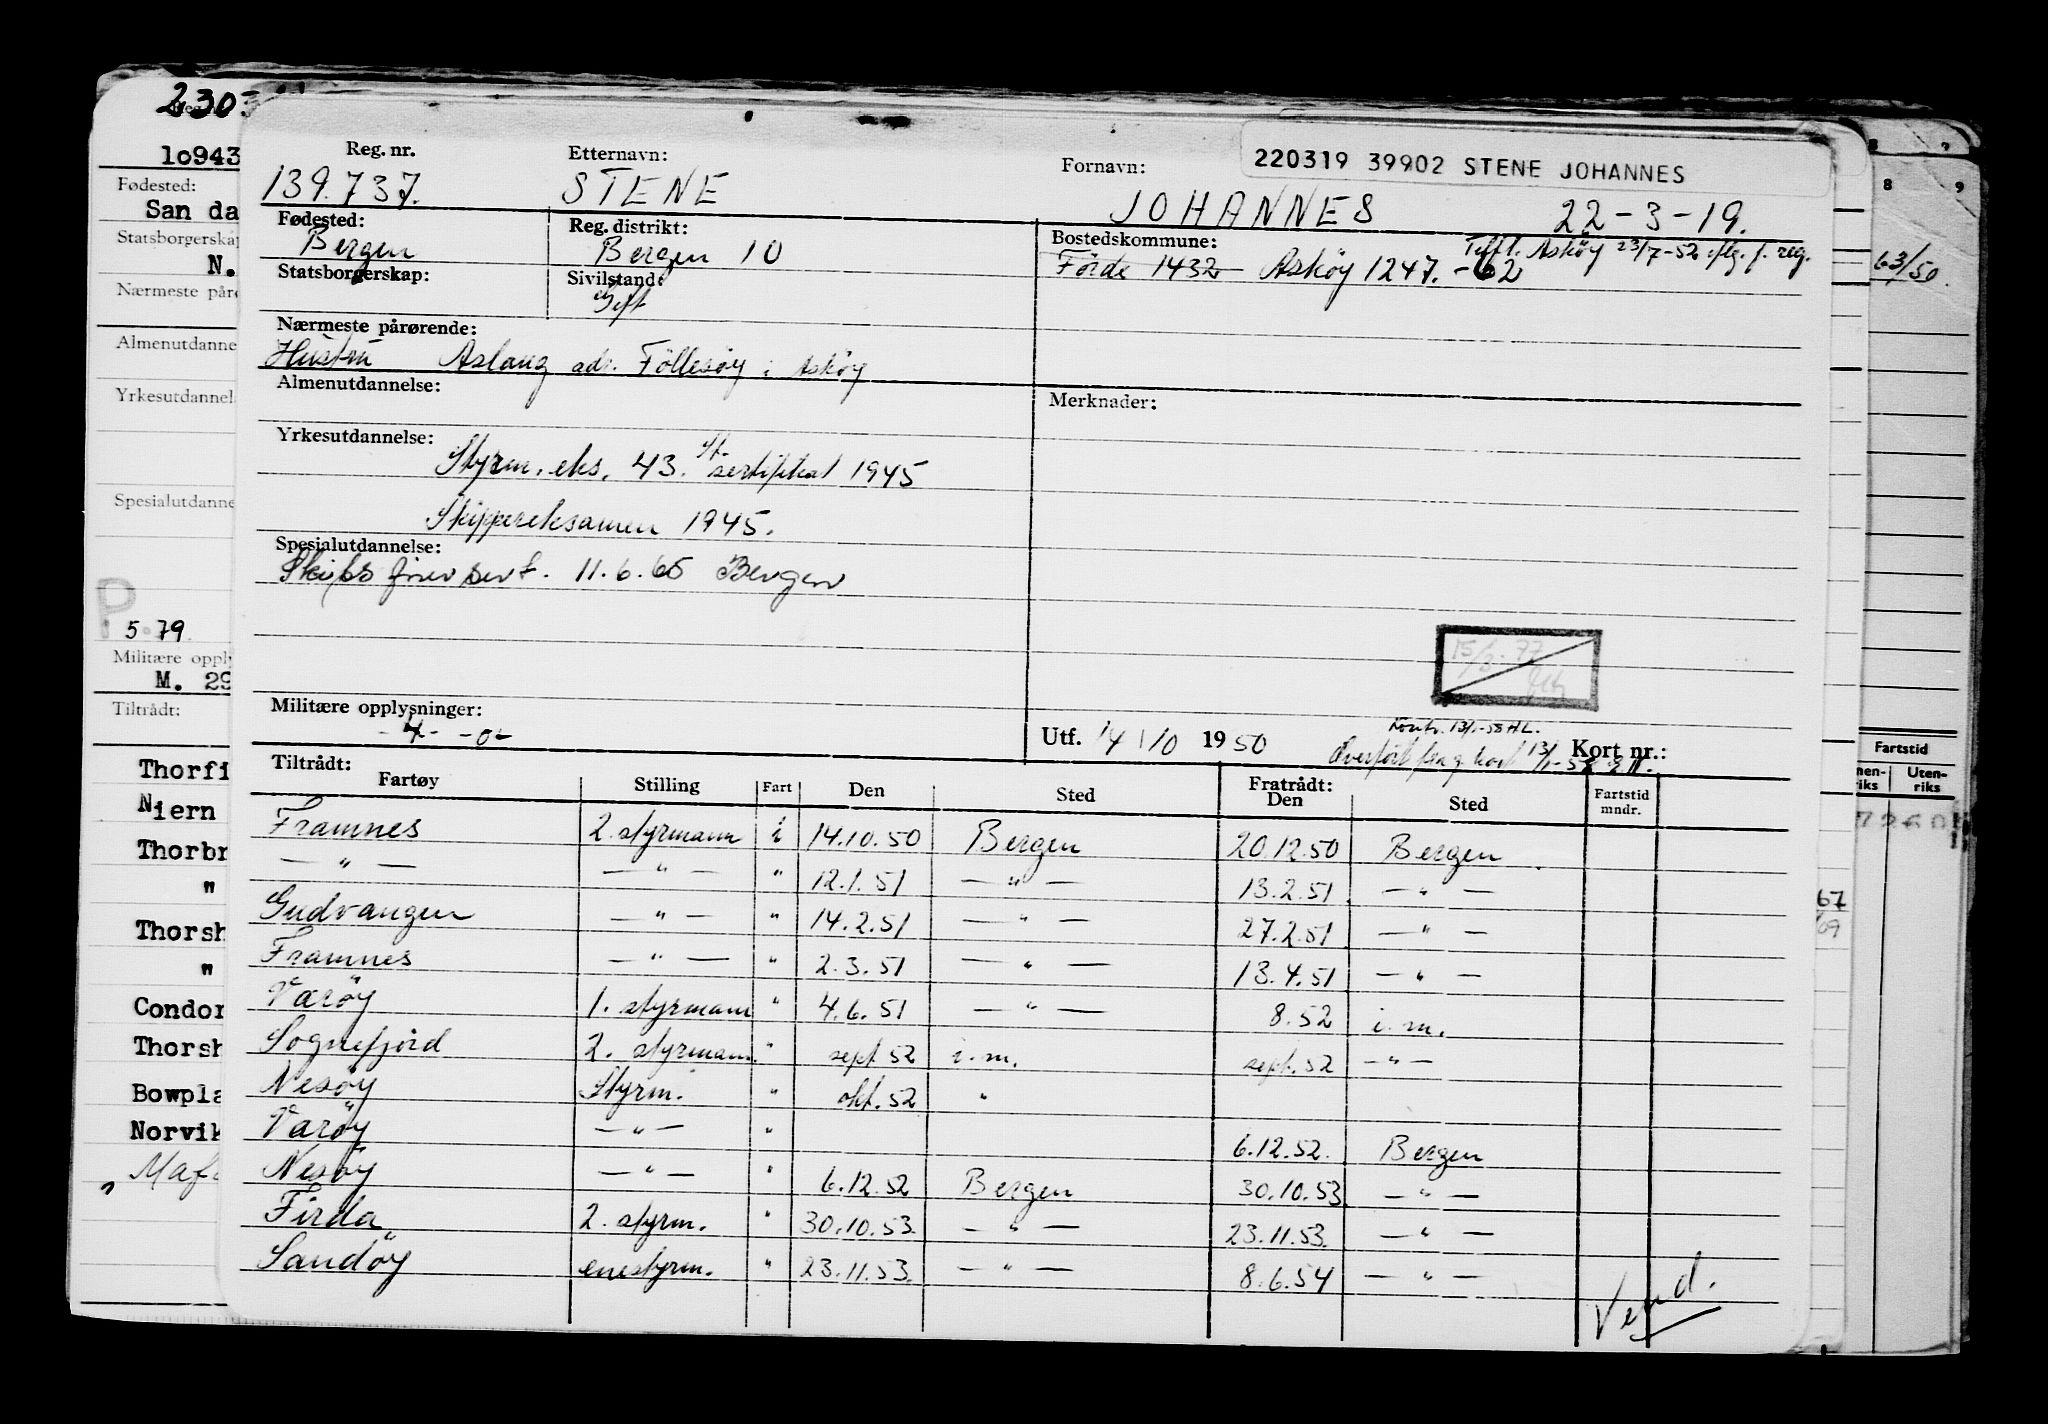 2303
Reg. nr. Etternavn: Fornavn: 220319 39902 STENE JOHANNES
139.737. STENE JOHANNES 22-3-19.
Fødested: Reg. distrikt: Bostedskommune: Tilfl. Asköy 23/7-52 iflg. f. reg.
Bergen Bergen 10 Förde 1432 - Asköy 1247. -62
Statsborgerskap: Sivilstand:
Gift
Nærmeste pårørende:
Hustru Aslaug adr. Föllesöy i Asköy
Almenutdannelse: Merknader:
Yrkesutdannelse:
Styrm. eks. 43. St. sertifikat 1945
Skippereksamen 1945.
Spesialutdannelse:
11.6.65 Bergen
15/3-77
Militære opplysninger:
-4- -0-
Utf. 14/10 1950 Kontr. 13/1-58 HL. Kort nr.:
Tiltrådt: Fratrådt:
Fartøy Stilling Fart Den Sted Den Sted Fartstid mndr.
Framnes 2. styrmann i 14.10.50 Bergen 20.12.50 Bergen
— " — — " — " 12.1.51 — " — 13.2.51 — " —
Gudvangen — " — " 14.2.51 — " — 27.2.51 — " —
Framnes — " — " 2.3.51 — " — 13.4.51 — " —
Varöy 1. styrmann " 4.6.51 — " — 8.52 i.m.
Sognefjord 2. styrmann " sept 52 i.m. sept. 52 — " —
Nesöy Styrm. " okt. 52 "
Varöy — " — " 6.12.52. Bergen
Nesöy — " — " 6.12.52 Bergen 30.10.53 — " —
Firda 2. styrm. " 30.10.53. — " — 23.11.53. — " —
Sandöy enestyrm. " 23.11.53. — " — 8.6.54 — " —
Vend.
1o943
Fødested:
San da
Statsborgerska
N.
Nærmeste påre
Almenutdanne
Yrkesutdannel
Spesialutdanne
P
5.79
Militære oppl
M. 29
Tiltrådt:
Thorfi
Niern
Thorbr
"
Thorsh
"
Condor
Thorsh
Bowpla
Norvik
8 9
63/50
Fartstid
nen-riks Uten-riks
67